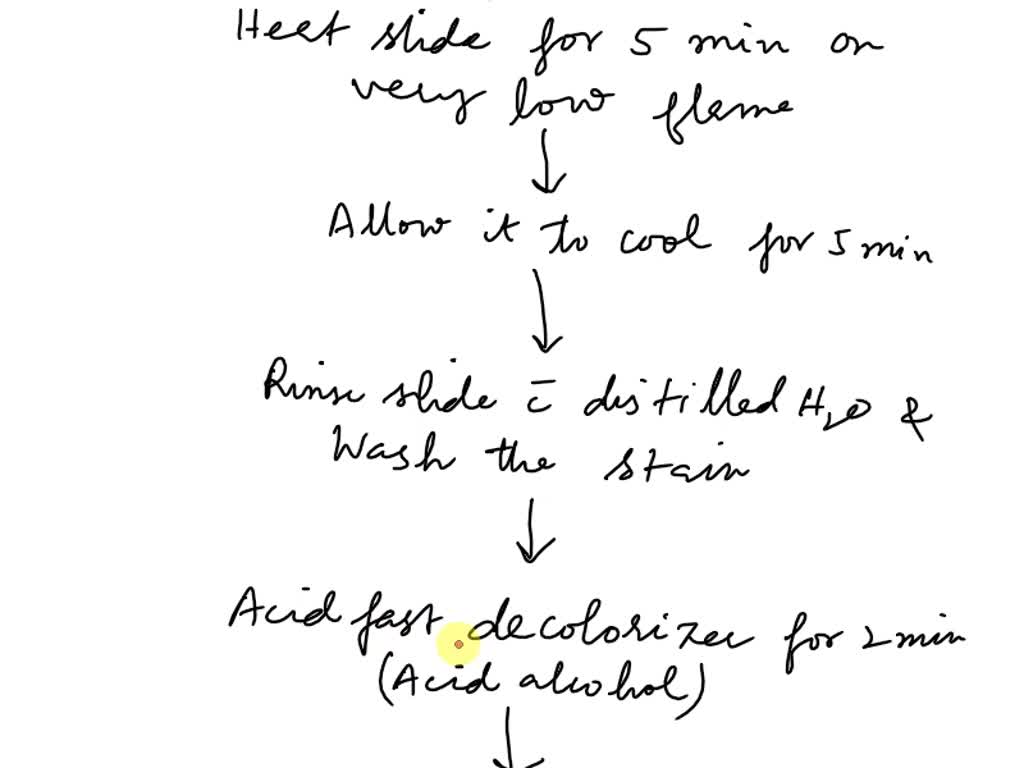 Heat slide for 5 min on
very low flame
Allow it to cool for 5 min
Rinse slide c̄ distilled H₂O &
Wash the stain
Acid fast decolorizer for 2 min
(Acid alcohol)